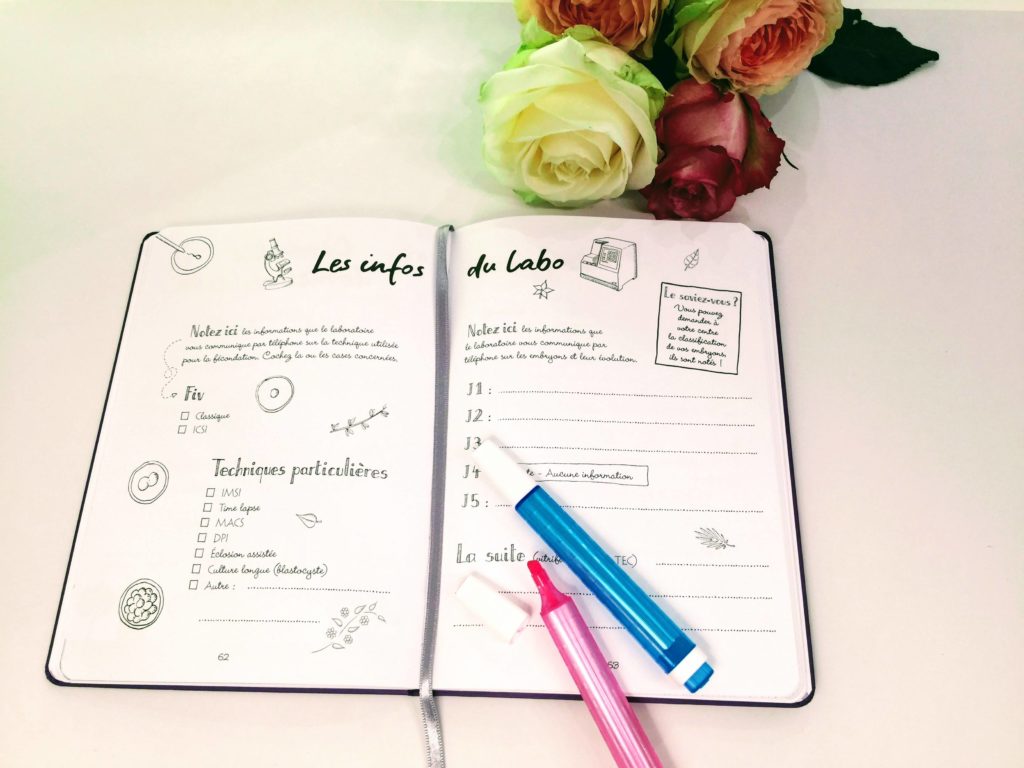 Les infos du labo
Notez ici les informations que le laboratoire
vous communique par téléphone sur la technique utilisée
pour la fécondation. Cochez la ou les cases concernées.
Fiv
Classique
ICSI
Techniques particulières
IMSI
Time lapse
MACS
DPI
Éclosion assistée
Culture longue (blastocyste)
Autre :
62
Le saviez-vous ?
Vous pouvez
demander à
votre centre
la classification
de vos embryons,
ils sont notés !
Notez ici les informations que
le laboratoire vous communique par
téléphone sur les embryons et leur évolution.
J1 :
J2 :
J3
J4 - Aucune information
J5 :
La suite TEC)